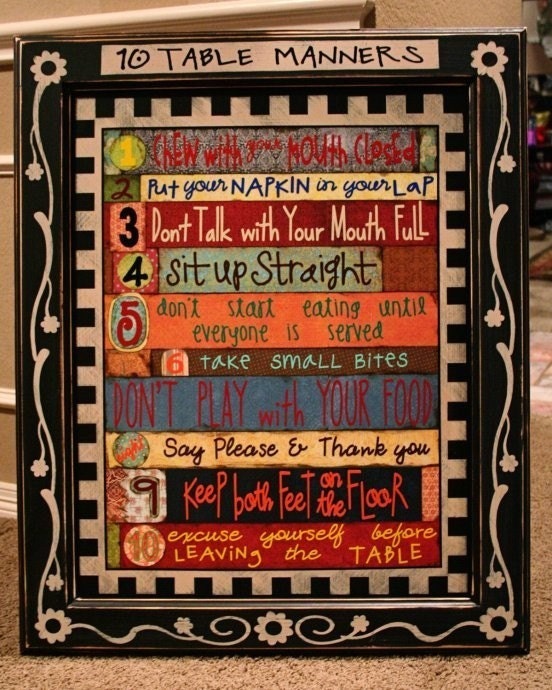 10 TABLE MANNERS
1 CHEW with your MOUTH CLOSED
2 Put your NAPKIN in your LAP
3 Dont Talk with Your Mouth Full
4 sit up Straight
5 don't start eating until
everyone is served
6 take small BITES
DON'T PLAY with YOUR FOOD
Say Please & Thank you
9 KEEP both FEET on the FLOOR
10 excuse yourself before
LEAVING the TABLE